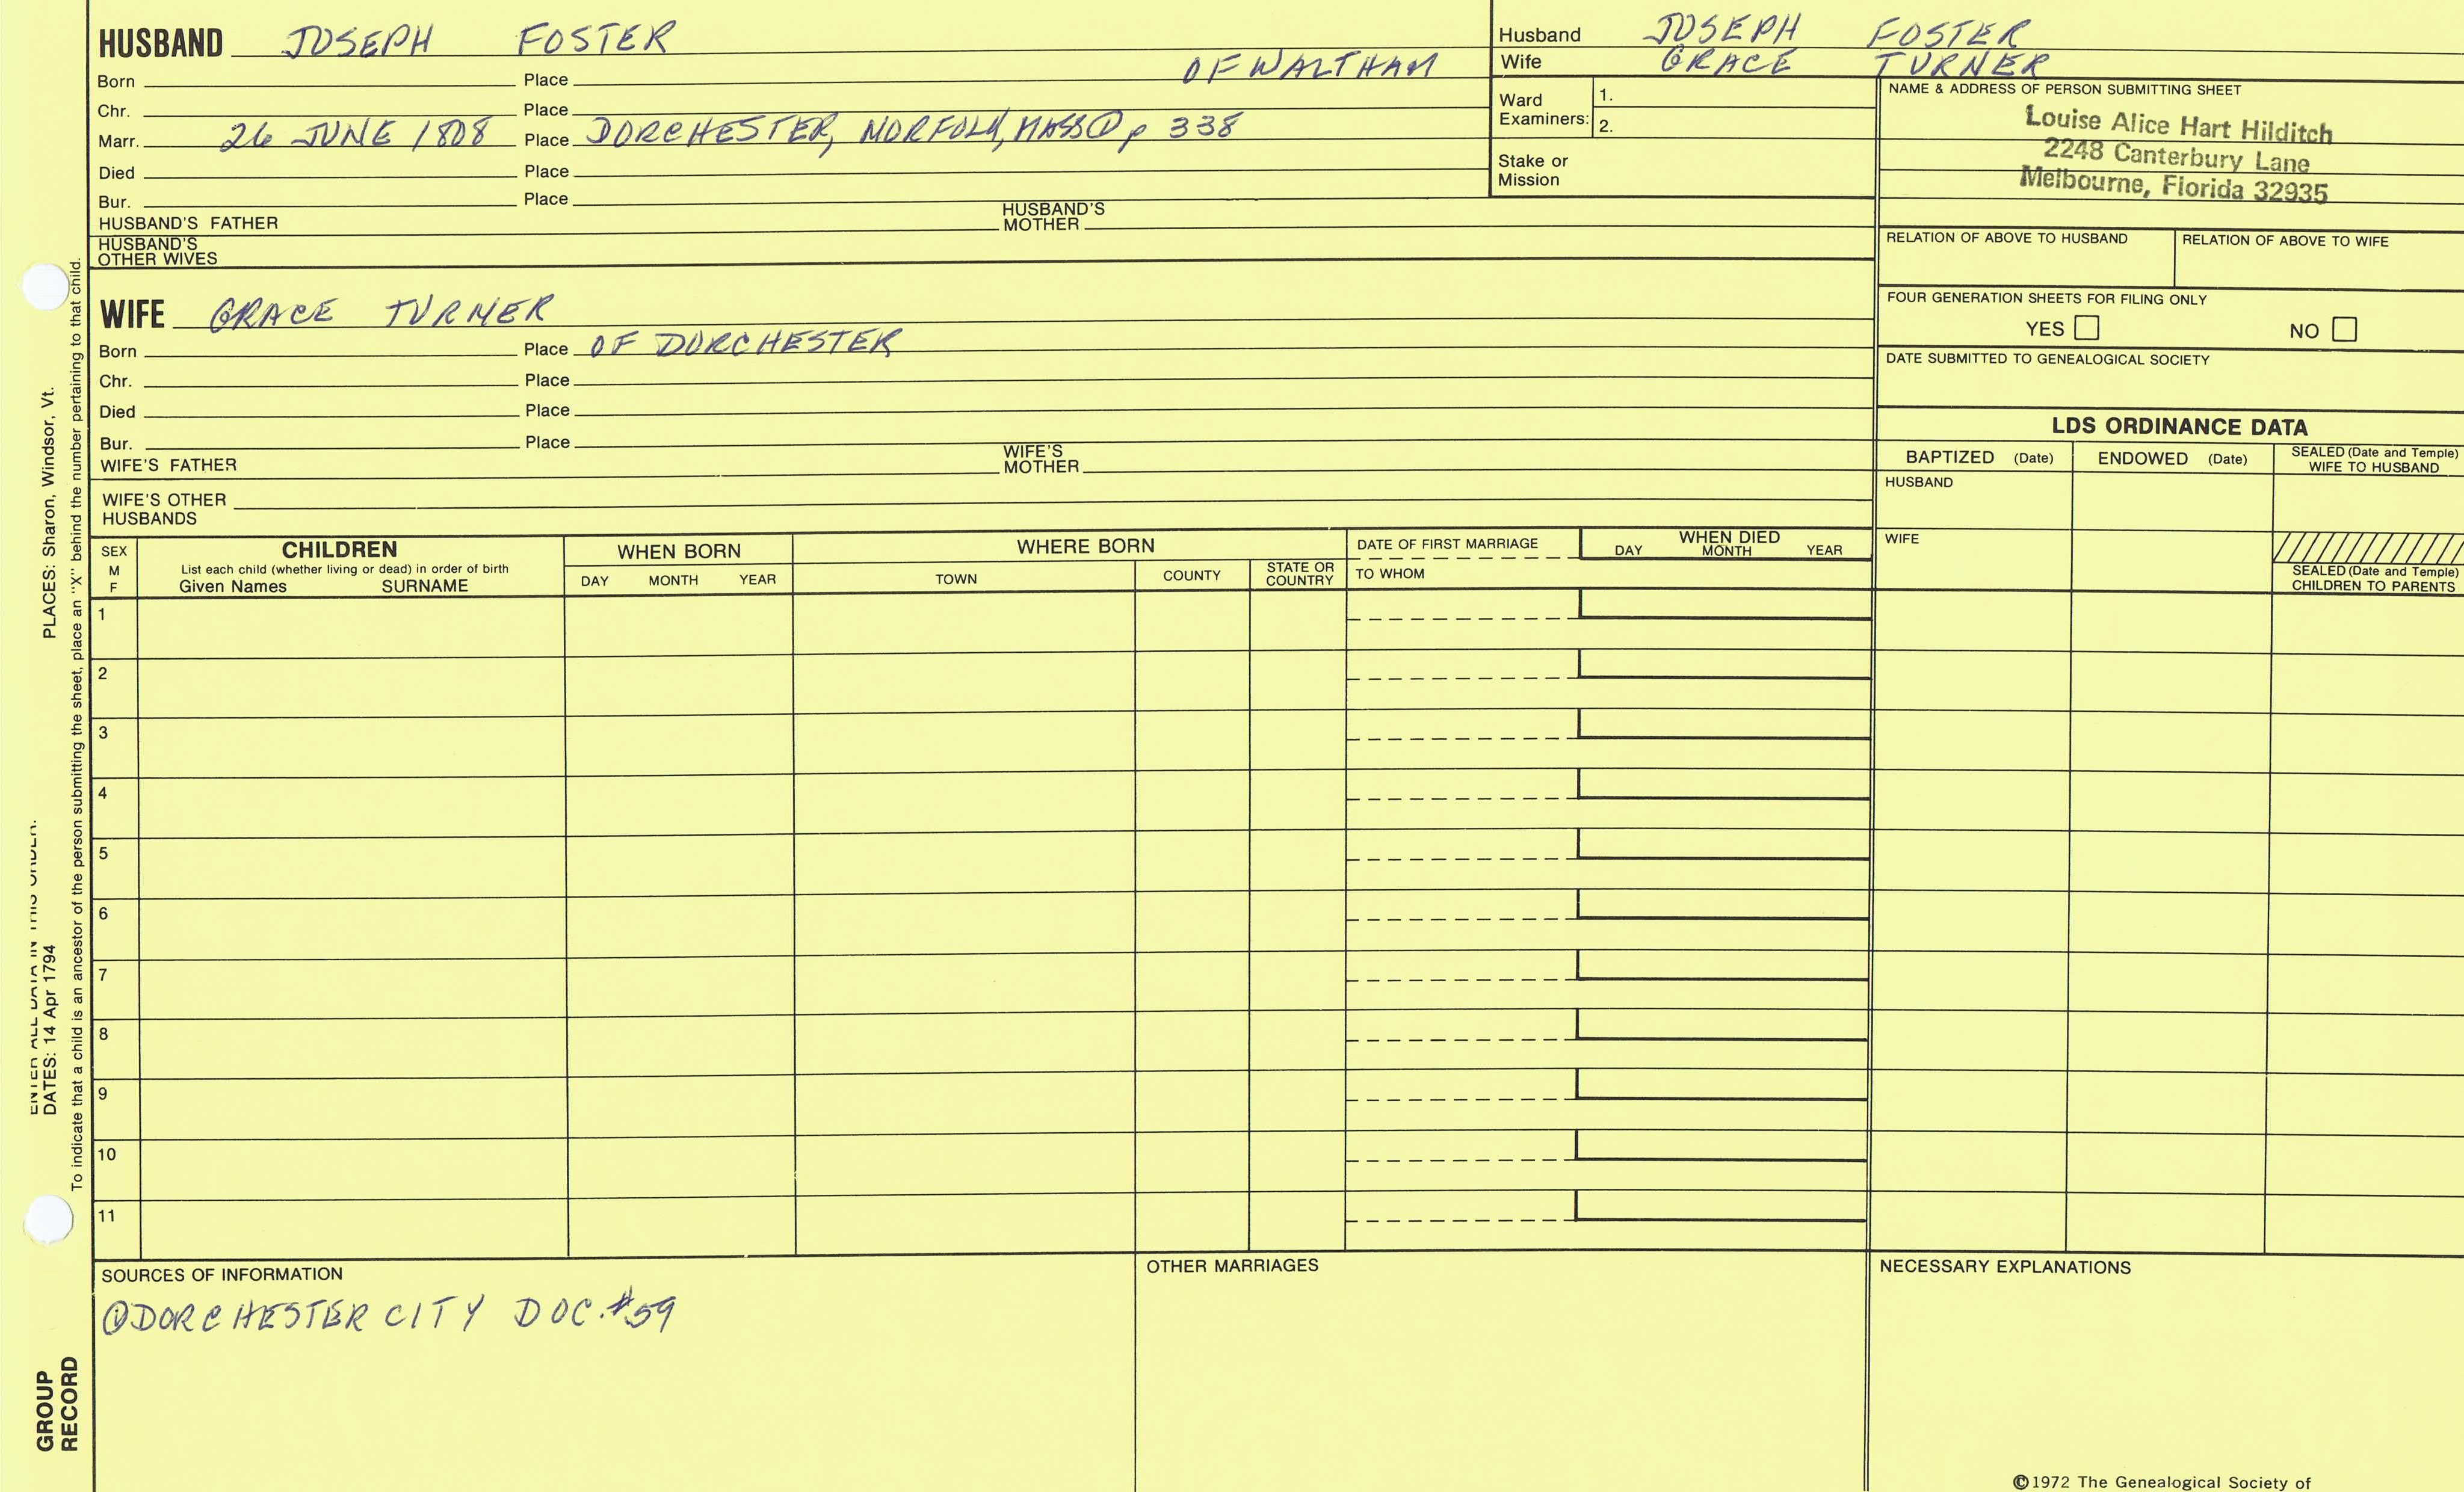 HUSBAND JOSEPH FOSTER
OF WALTHAM
Born Place
Chr. Place
Marr. 26 JUNE 1808 Place DORCHESTER, NORFOLK, MASS ① p 338
Died Place
Bur. Place
HUSBAND'S FATHER HUSBAND'S MOTHER
HUSBAND'S
OTHER WIVES
WIFE GRACE TURNER
Born Place OF DORCHESTER
Chr. Place
Died Place
Bur. Place
WIFE'S FATHER WIFE'S MOTHER
WIFE'S OTHER
HUSBANDS
Husband JOSEPH FOSTER
Wife GRACE TURNER
Ward
Examiners: 1.
2.
Stake or
Mission
NAME & ADDRESS OF PERSON SUBMITTING SHEET
Louise Alice Hart Hilditch
2248 Canterbury Lane
Melbourne, Florida 32935
RELATION OF ABOVE TO HUSBAND RELATION OF ABOVE TO WIFE
FOUR GENERATION SHEETS FOR FILING ONLY
YES NO
DATE SUBMITTED TO GENEALOGICAL SOCIETY
LDS ORDINANCE DATA
BAPTIZED (Date) ENDOWED (Date) SEALED (Date and Temple)
WIFE TO HUSBAND
HUSBAND
WIFE
SEALED (Date and Temple)
CHILDREN TO PARENTS
SEX
M
F
CHILDREN
List each child (whether living or dead) in order of birth
Given Names SURNAME
WHEN BORN
DAY MONTH YEAR
WHERE BORN
TOWN COUNTY STATE OR COUNTRY
DATE OF FIRST MARRIAGE
TO WHOM
WHEN DIED
DAY MONTH YEAR
1
2
3
4
5
6
7
8
9
10
11
SOURCES OF INFORMATION
① DORCHESTER CITY DOC. #59
OTHER MARRIAGES
NECESSARY EXPLANATIONS
©1972 The Genealogical Society of
ENTER ALL DATA IN THIS ORDER:
DATES: 14 Apr 1794 PLACES: Sharon, Windsor, Vt.
To indicate that a child is an ancestor of the person submitting the sheet, place an "X" behind the number pertaining to that child.
GROUP
RECORD